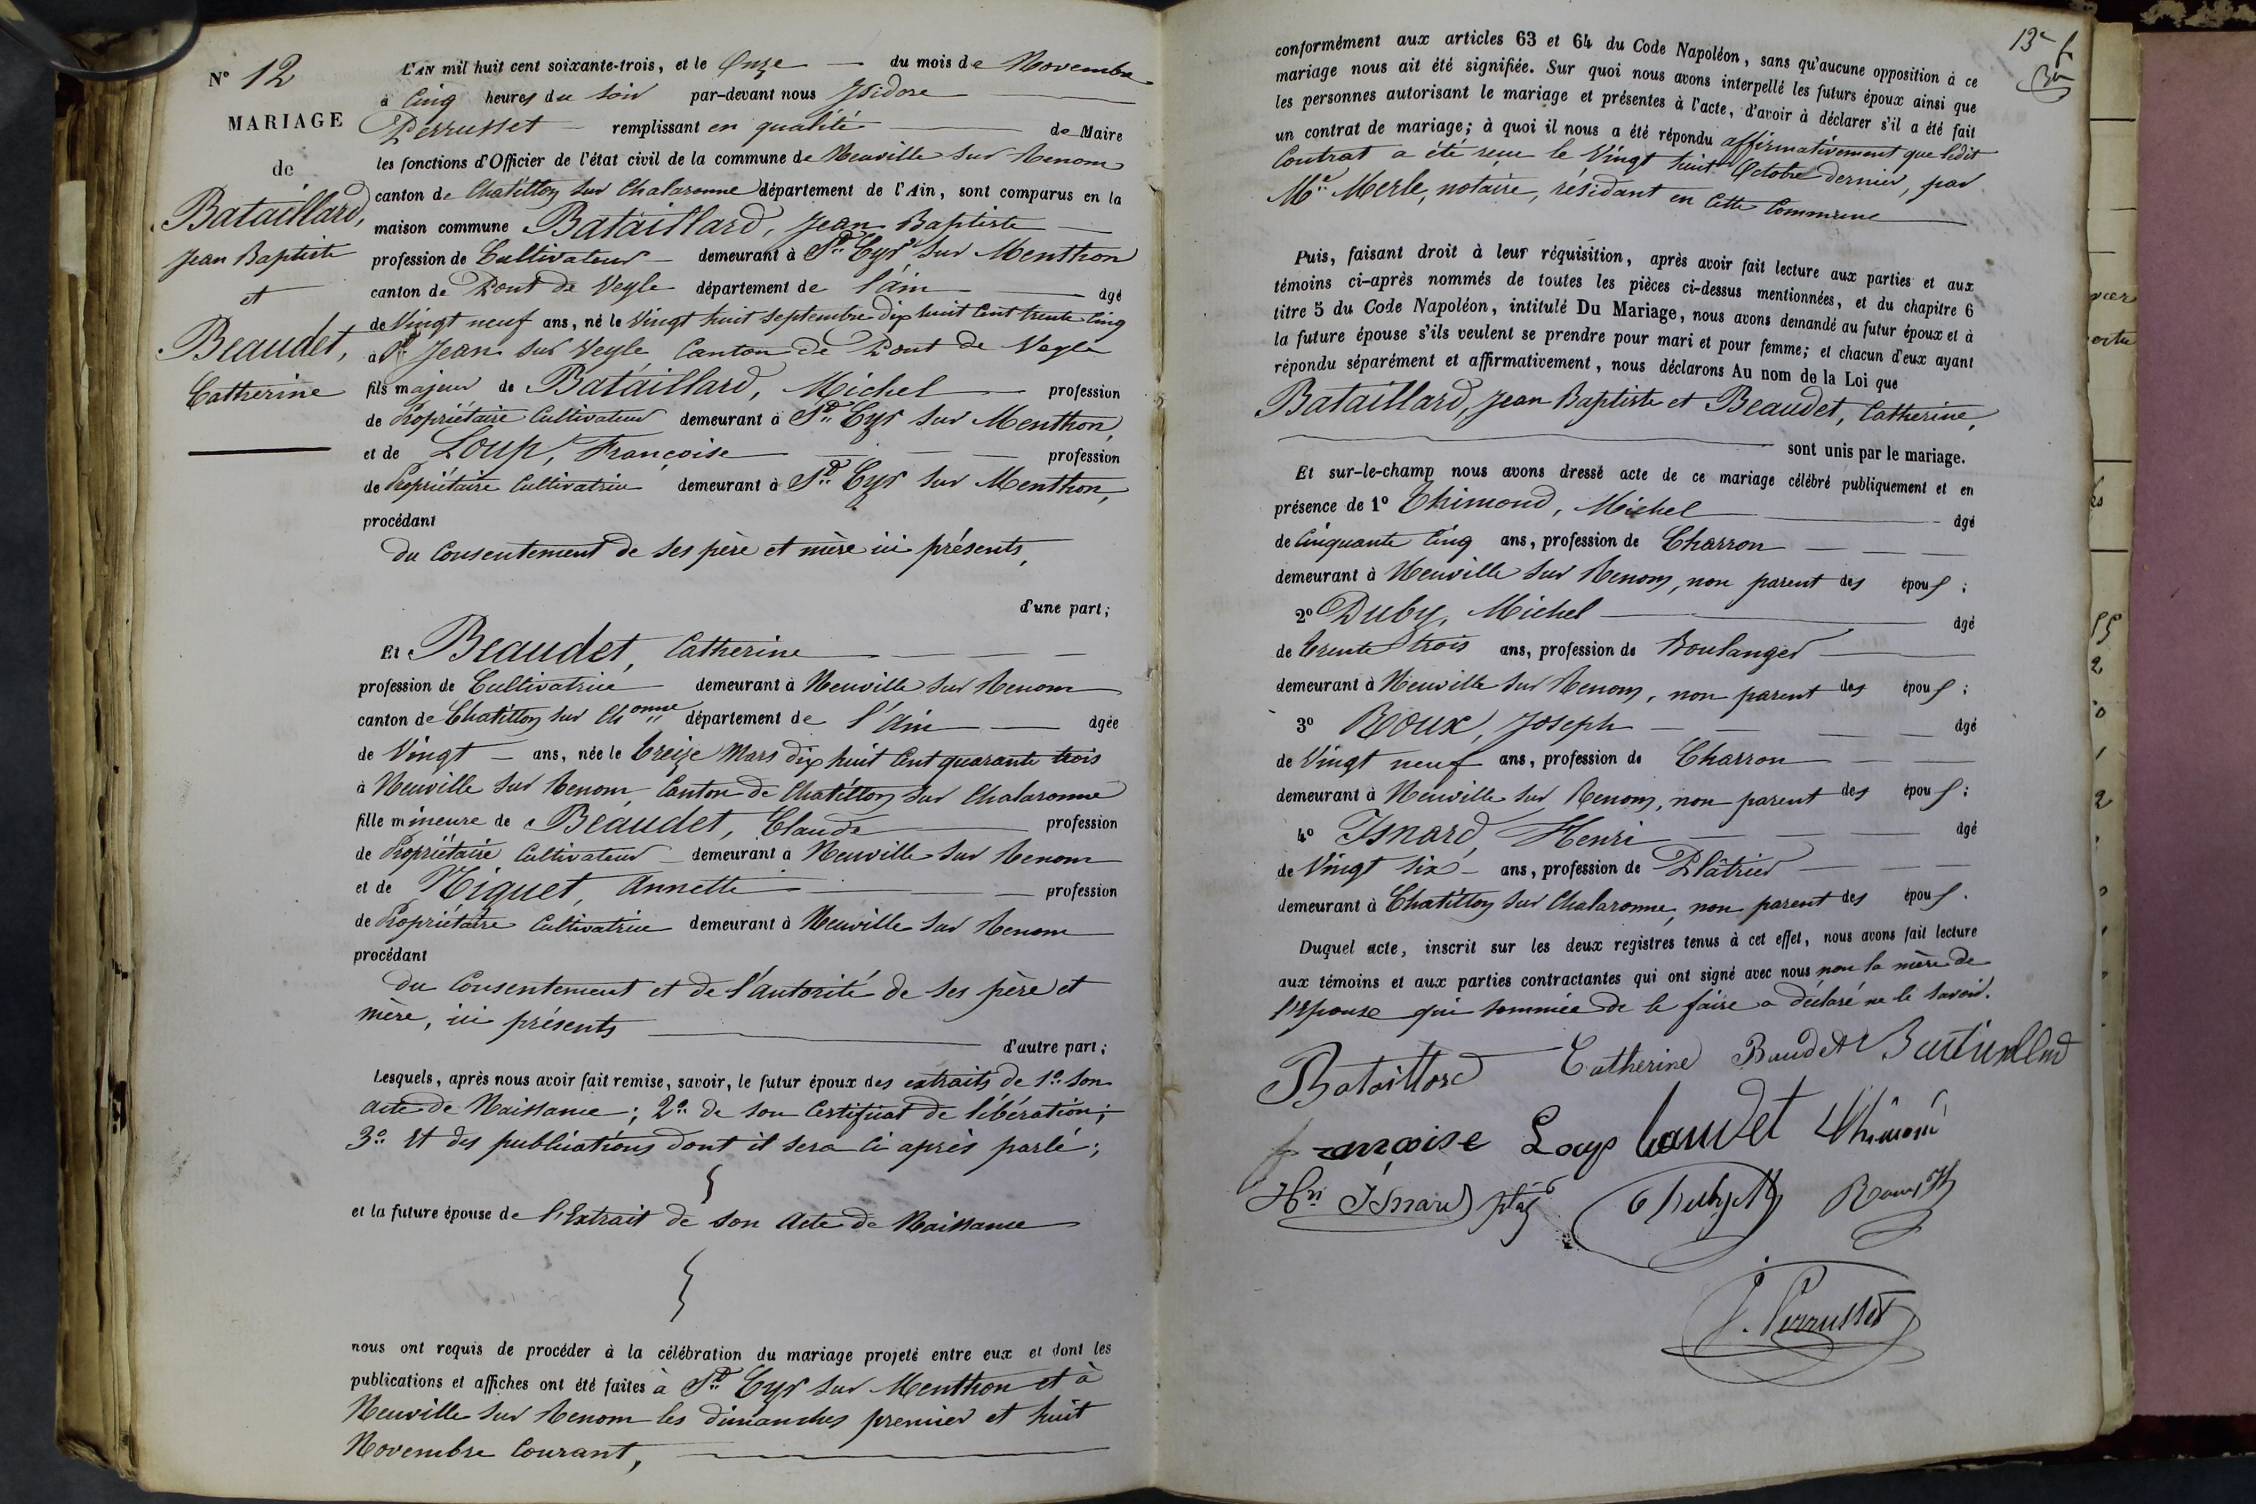 N° 12
MARIAGE
de
Bataillard,
Jean Baptiste
et
Beaudet,
Catherine
L'AN mil huit cent soixante-trois, et le Onze — du mois de Novembre
à Cinq heures du Soir par-devant nous Isidore
Perrusset — remplissant en qualité — de Maire
les fonctions d'Officier de l'état civil de la commune de Neuville sur Renom
canton de Chatillon sur Chalaronne département de l'Ain, sont comparus en la
maison commune Bataillard, Jean Baptiste —
profession de Cultivateur — demeurant à St Cyr sur Menthon
canton de Pont de Veyle département de l'ain — âgé
de Vingt neuf ans, né le Vingt huit Septembre dix huit Cent trente Cinq
à St Jean sur Veyle, Canton de Pont de Veyle
fils majeur de Bataillard, Michel — profession
de Propriétaire Cultivateur demeurant à St Cyr sur Menthon,
et de Loup, Françoise — profession
de Propriétaire Cultivatrice demeurant à St Cyr sur Menthon,
procédant
du Consentement de ses père et mère ici présents,
d'une part;
Et Beaudet, Catherine —
profession de Cultivatrice — demeurant à Neuville sur Renom
canton de Chatillon sur Chonne département de l'Ain — âgée
de Vingt — ans, née le treize Mars dix huit Cent quarante trois
à Neuville sur Renom, Canton de Chatillon sur Chalaronne
fille mineure de Beaudet, Claude — profession
de Propriétaire Cultivateur — demeurant à Neuville sur Renom
et de Niquet, Annette — profession
de Propriétaire Cultivatrice demeurant à Neuville sur Renom
procédant
du Consentement et de l'Autorité de ses père et
mère, ici présents —
d'autre part;
Lesquels, après nous avoir fait remise, savoir, le futur époux des extraits de 1° son
Acte de Naissance; 2° de son Certificat de libération;
3° Et des publications dont il sera ci après parlé;
et la future épouse de l'Extrait de son Acte de Naissance
nous ont requis de procéder à la célébration du mariage projeté entre eux et dont les
publications et affiches ont été faites à St Cyr sur Menthon et à
Neuville sur Renom les dimanches premier et huit
Novembre Courant, —
13e f
conformément aux articles 63 et 64 du Code Napoléon, sans qu'aucune opposition à ce
mariage nous ait été signifiée. Sur quoi nous avons interpellé les futurs époux ainsi que
les personnes autorisant le mariage et présentes à l'acte, d'avoir à déclarer s'il a été fait
un contrat de mariage; à quoi il nous a été répondu affirmativement que ledit
Contrat a été reçu le Vingt huit Octobre dernier, par
Me Merle, notaire, résidant en Cette Commune
Puis, faisant droit à leur réquisition, après avoir fait lecture aux parties et aux
témoins ci-après nommés de toutes les pièces ci-dessus mentionnées, et du chapitre 6
titre 5 du Code Napoléon, intitulé Du Mariage, nous avons demandé au futur époux et à
la future épouse s'ils veulent se prendre pour mari et pour femme; et chacun d'eux ayant
répondu séparément et affirmativement, nous déclarons Au nom de la Loi que
Bataillard, Jean Baptiste et Beaudet, Catherine,
— sont unis par le mariage.
Et sur-le-champ nous avons dressé acte de ce mariage célébré publiquement et en
présence de 1° Thimond, Michel — âgé
de Cinquante Cinq ans, profession de Charron —
demeurant à Neuville sur Renom, non parent des épou s;
2° Duby, Michel — âgé
de trente trois ans, profession de Boulanger —
demeurant à Neuville sur Renom, non parent des épou s;
3° Roux, Joseph — âgé
de Vingt neuf ans, profession de Charron —
demeurant à Neuville sur Renom, non parent des épou s;
4° Isnard, Henri — âgé
de Vingt six — ans, profession de Plâtrier —
demeurant à Chatillon sur Chalaronne, non parent des épou s.
Duquel acte, inscrit sur les deux registres tenus à cet effet, nous avons fait lecture
aux témoins et aux parties contractantes qui ont signé avec nous, non la mère de
l'épouse qui sommée de le faire a déclaré ne le savoir.
Bataillard Catherine Baudet Bataillard
françoise Loup baudet Thimond
Hri Isnard
J. Perrusset